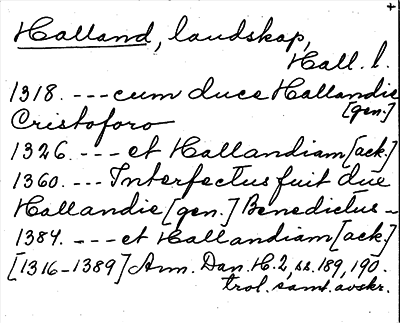 +
Halland, landskap,
Hall. l.
1318. --- cum duce Hallandie
[gen.]
Cristoforo
1326. --- et Hallandiam [ack.]
1360. --- Interfectus fuit dūe
Hallandie [gen.] Benedictus –
1384. --- et Hallandiam [ack.]
[1316-1389] Ann. Dan. H. 2, ss. 189, 190.
trol. samt. avskr.